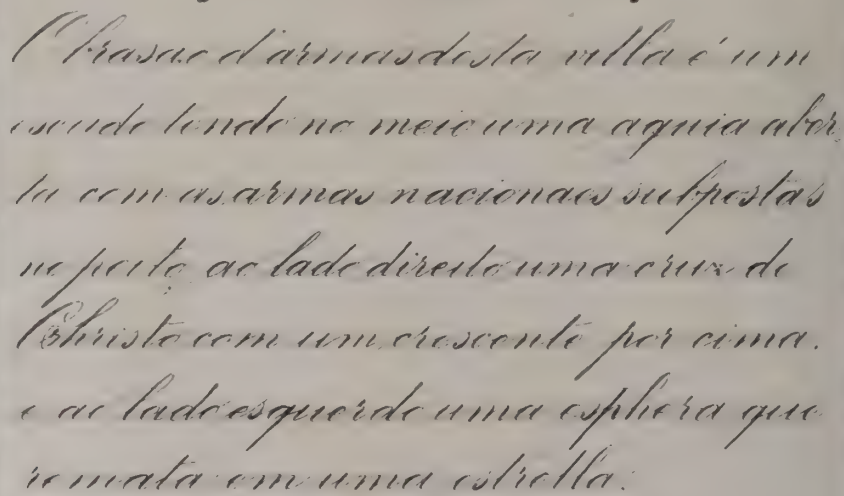 O brasao d'armas desta villa é um
escudo tendo no meio uma aguia aber
ta com as armas nacionaes subpostas
no peito, ao lado direito uma cruz de
Christo com um crescente por cima.
e ao lado esquerdo uma esphera que
remata em uma estrella.